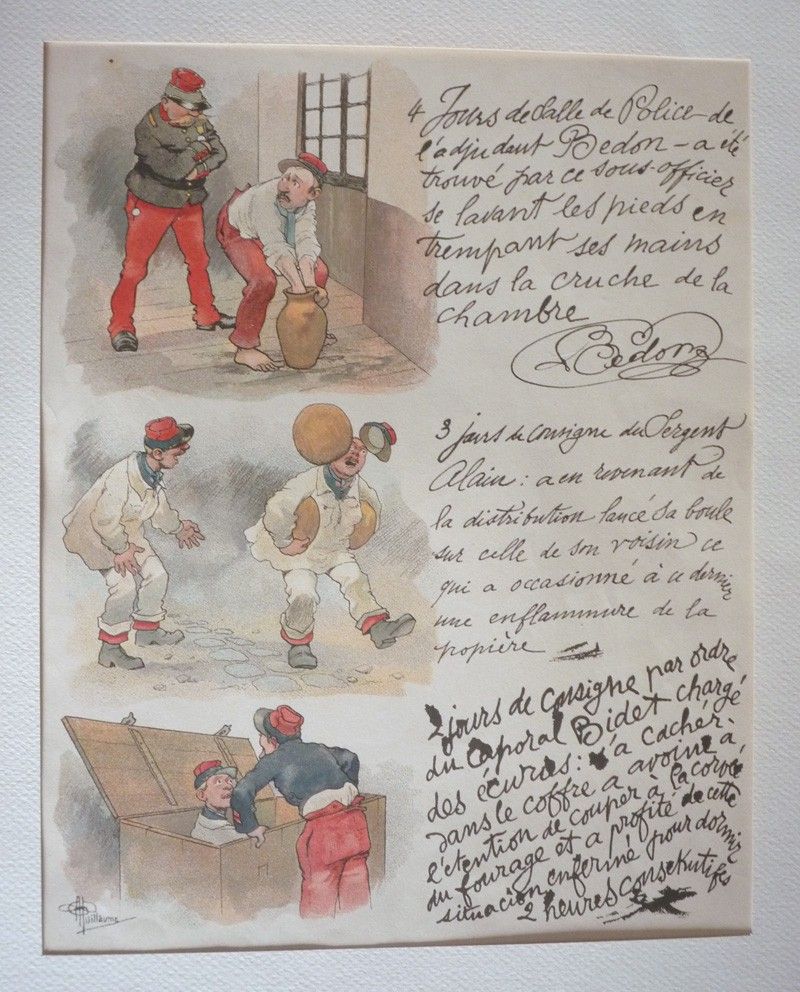 4 Jours de Salle de Police de
l'adjudant Bedon - a été
trouvé par ce sous-officier
se lavant les pieds en
trempant ses mains
dans la cruche de la
chambre
Bedon
3 jours de consigne du Sergent
Alain : a en revenant de
la distribution lancé sa boule
sur celle de son voisin ce
qui a occasionné à ce dernier
une enflammure de la
popière
2 jours de consigne par ordre
du Caporal Bidet chargé
des écuries : s'a cacher
dans le coffre a avoine à
l'étention de couper à la corvée
du fourage et a profité de cette
situacion enfermé pour dormir
2 heures consekutifs
A Guillaume